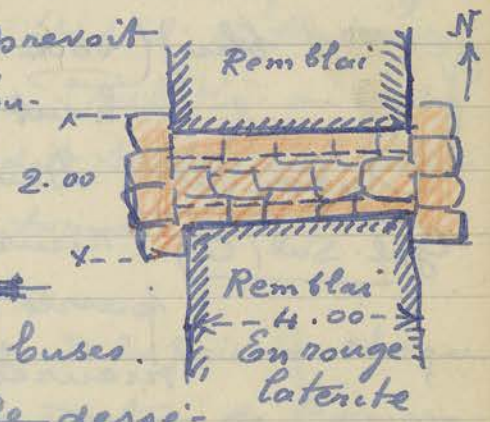 prevoit
N
Remblai
2.00
Remblai
4.00
buses.
En rouge
laterite